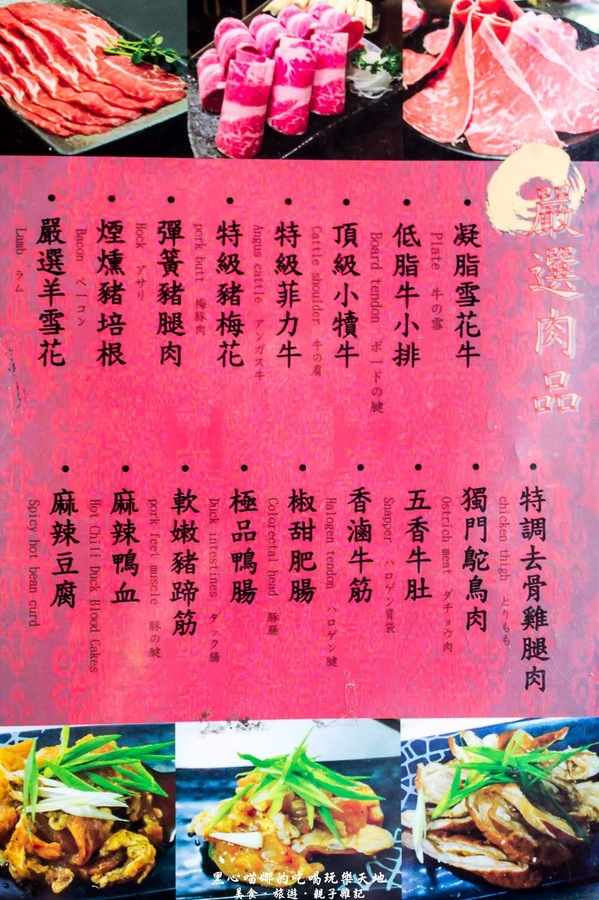 嚴選肉品
凝脂雪花牛
Plate 牛の雪
低脂牛小排
Board tendon ボードの腱
頂級小犢牛
Cattle shoulder 牛の肩
特級菲力牛
Angus cattle アンガス牛
特級豬梅花
pork butt 梅豚肉
彈簧豬腿肉
Hock アサリ
煙燻豬培根
Bacon ベーコン
嚴選羊雪花
Lamb ラム
特調去骨雞腿肉
chicken thigh とりもも
獨門鴕鳥肉
Ostrich meat ダチョウ肉
五香牛肚
Snapper ハロゲン胃袋
香滷牛筋
Halogen tendon ハロゲン腱
椒甜肥腸
Colorectal head 豚腸
極品鴨腸
Duck intestines ダック腸
軟嫩豬蹄筋
pork feet muscle 豚の腱
麻辣鴨血
Hot Chili Duck Blood Cakes
麻辣豆腐
Spicy hot bean curd
黑心喵娜的吃喝玩樂天地
美食·旅遊·親子雜記